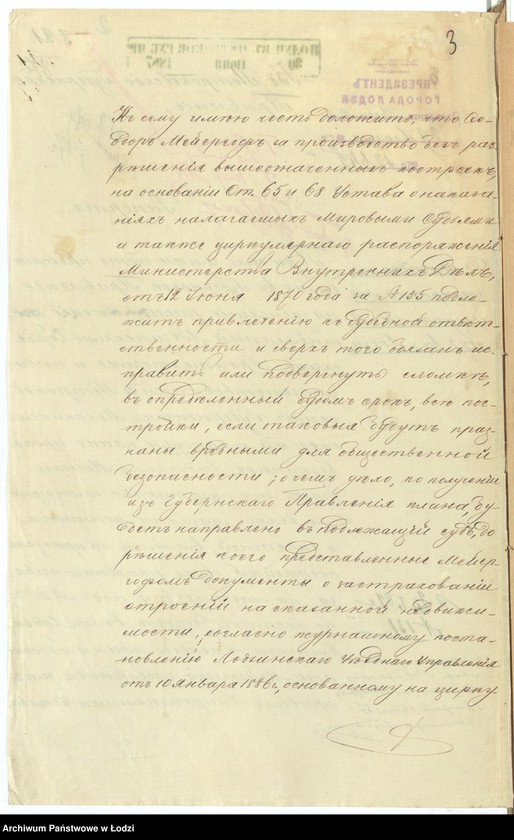 3
Къ сему имѣю честь доложить, что Ѳео-
доръ Мейергофъ за производство безъ раз-
рѣшенія вышеозначенныхъ построекъ,
на основаніи Ст. 65 и 68 Устава о наказа-
ніяхъ налагаемыхъ Мировыми Судьями
а также циркулярнаго распоряженія
Министерства Внутреннихъ Дѣлъ,
отъ 12 Іюня 1870 года за № 155 подле-
житъ привлеченію къ судебной отвѣт-
ственности и сверхъ того обязанъ ис-
править или подвергнуть сломкѣ,
въ опредѣленный судомъ срокъ, всѣ пос-
тройки, если таковыя будутъ приз-
наны вредными для общественной
безопасности; о чемъ дѣло, по полученіи
изъ Губернскаго Правленія плана, бу-
детъ направлено въ подлежащій судъ, до
рѣшенія коего представленные Мейер-
гофомъ документы о застрахованіи
строеній на сказанной недвижи-
мости, согласно журнальному поста-
новленію Лодзинскаго Уѣзднаго Управленія
отъ 10 Января 1886 г., основанному на цирку
Archiwum Państwowe w Łodzi